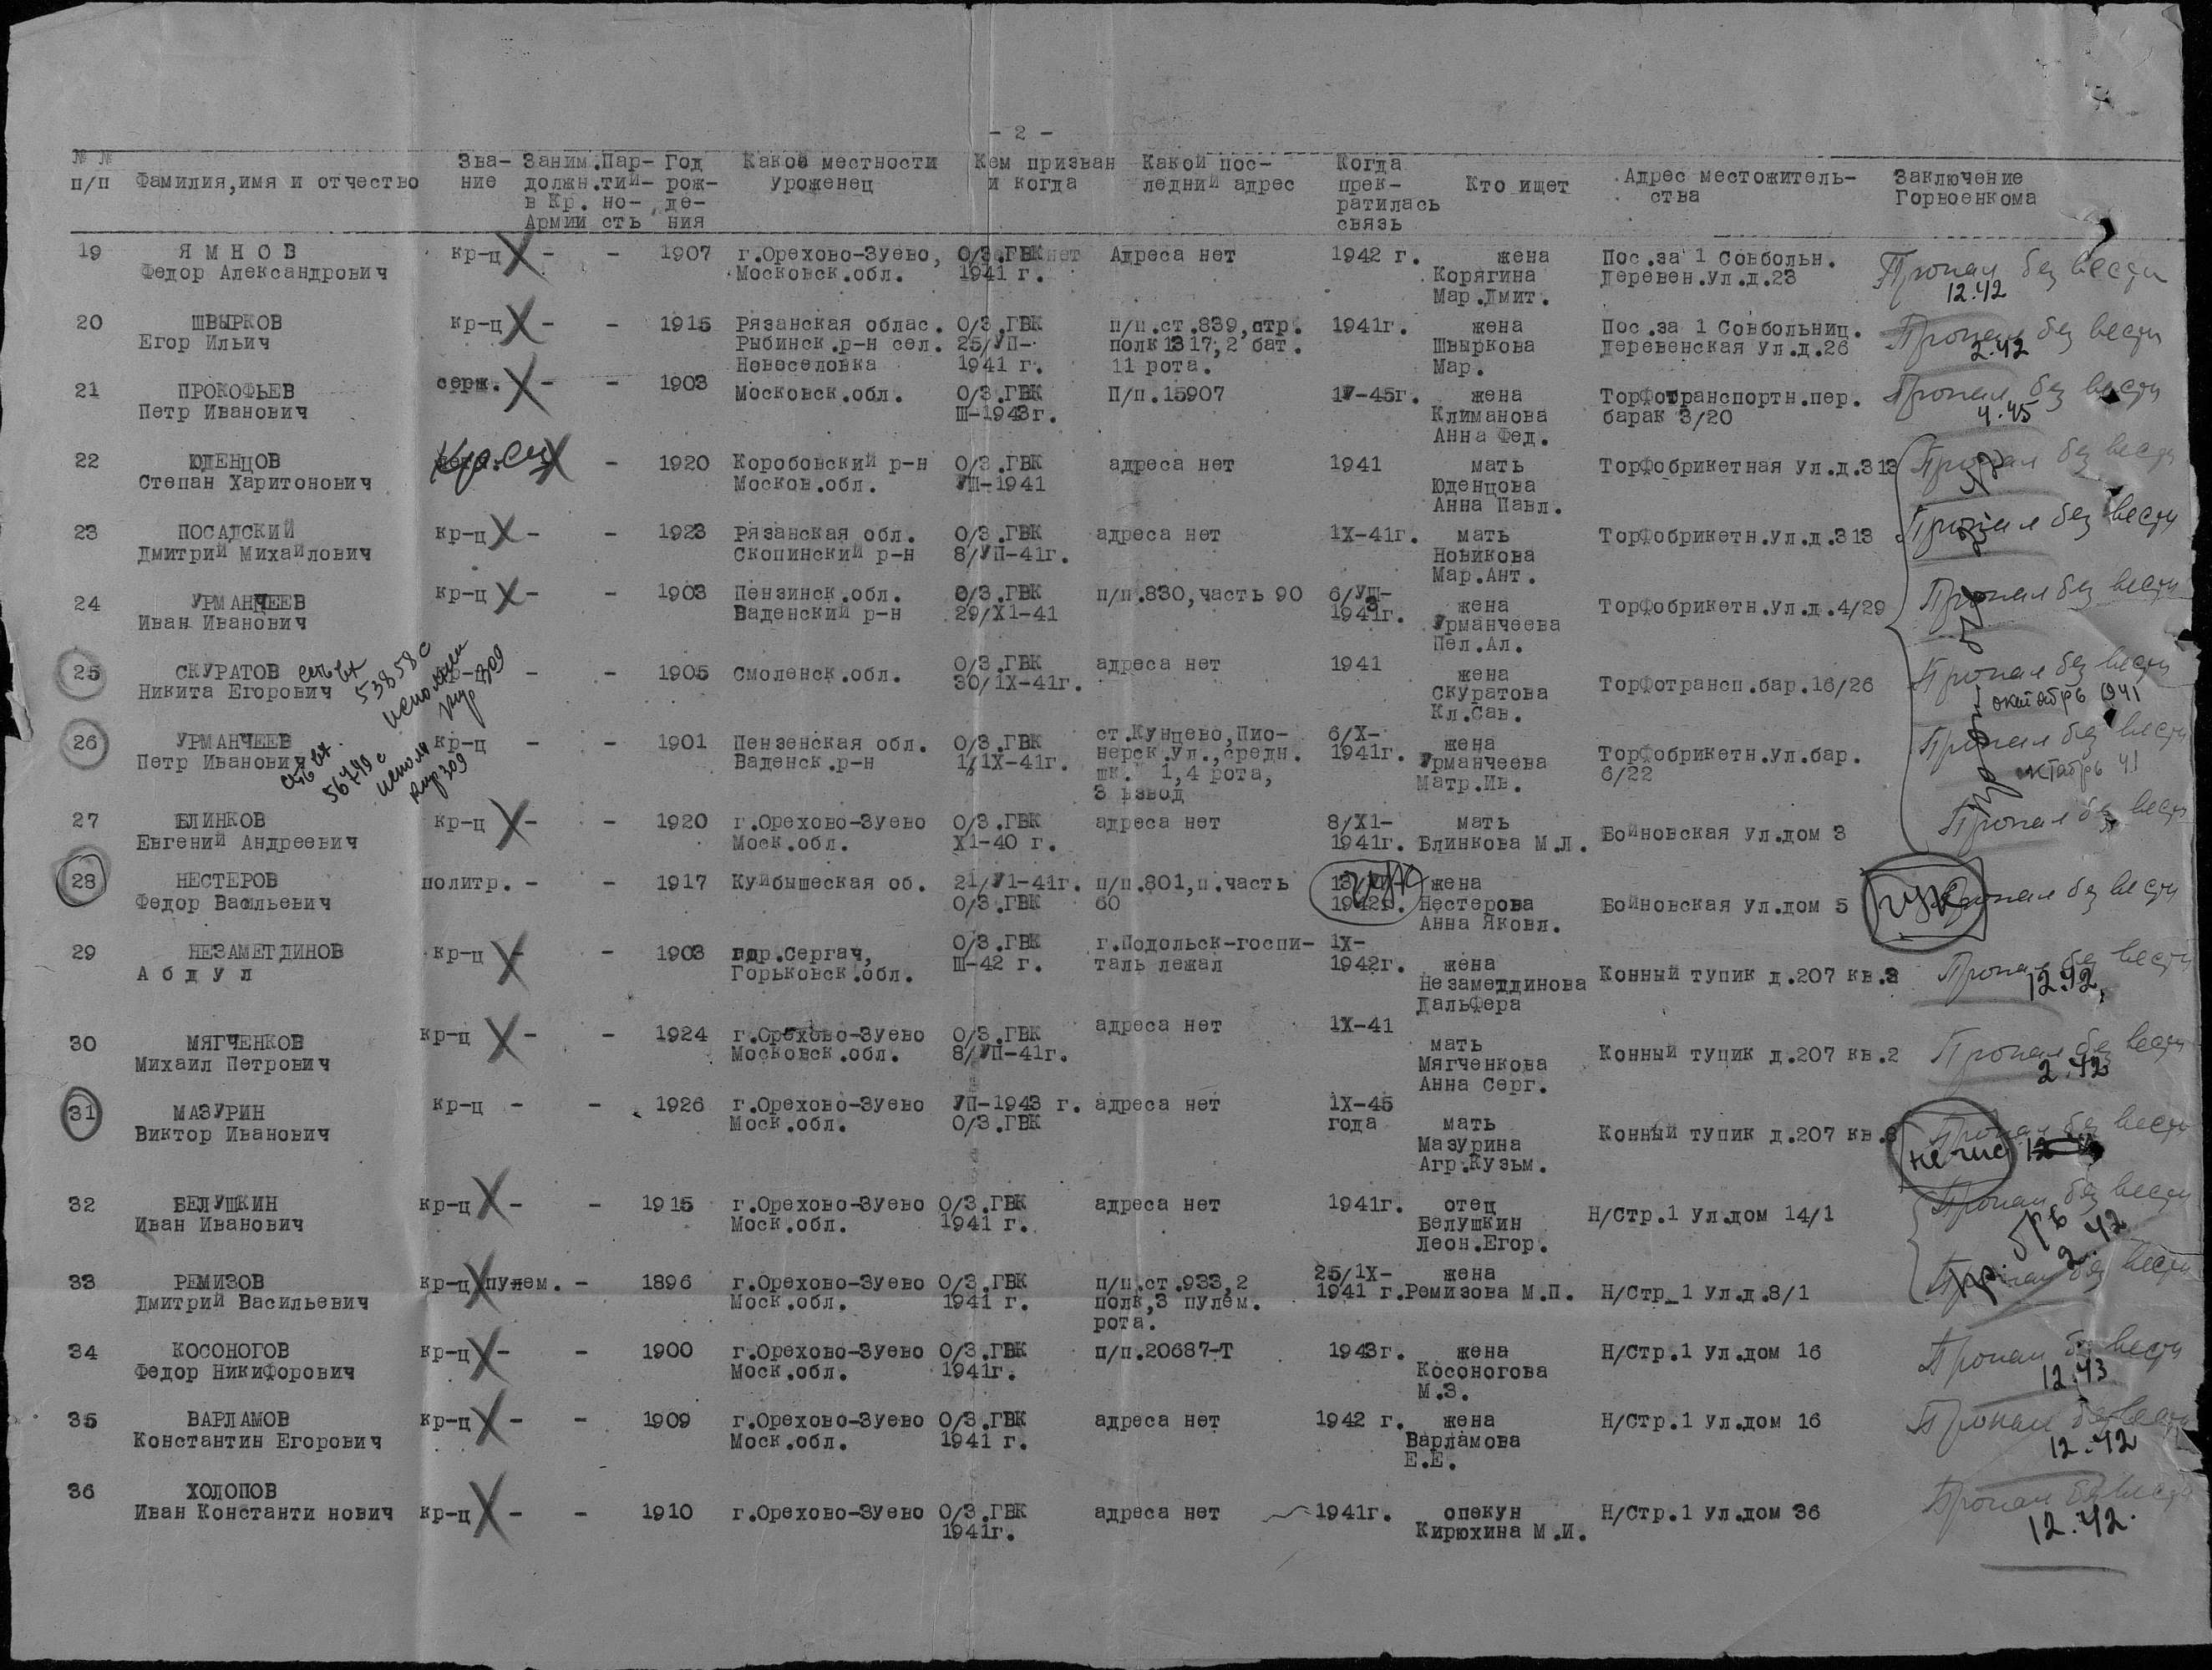 - 2 -
№ № Зва- Заним. Пар- Год Какой местности Кем призван Какой пос- Когда Адрес местожитель- Заключение
п/п Фамилия,имя и отчество ние должн. тий- рож- уроженец и когда ледний адрес прек- Кто ищет ства Горвоенкома
в Кр. но- де- ратилась
Армии сть ния связь
19 ЯМНОВ кр-ц - - 1907 г.Орехово-Зуево, О/З.ГВК Адреса нет 1942 г. жена Пос.за 1 Совбольн. Пропал без вести
Федор Александрович Московск.обл. 1941 г. Корягина Деревен.ул.д.23 12.42
Мар.Дмит.
20 ШВЫРКОВ кр-ц - - 1915 Рязанская облас. О/З.ГВК п/п.ст.839,стр. 1941г. жена Пос.за 1 Совбольниц. Пропал без вести
Егор Ильич Рыбинск.р-н сел. 25/УП- полк1317,2 бат. Швыркова Деревенская ул.д.26 2.42
Новоселовка 1941 г. 11 рота. Мар.
21 ПРОКОФЬЕВ серж. - - 1903 Московск.обл. О/З.ГВК П/п.15907 1У-45г. жена Торфотранспортн.пер. Пропал без вести
Петр Иванович Ш-1943г. Климанова барак 3/20 4.45
Анна Фед.
22 ЮДЕНЦОВ Кр-ец - 1920 Коробовский р-н О/З.ГВК адреса нет 1941 мать Торфобрикетная ул.д.313 Пропал без вести
Степан Харитонович Москов.обл. УШ-1941 Юденцова
Анна Павл.
23 ПОСАДСКИЙ кр-ц - - 1923 Рязанская обл. О/З.ГВК адреса нет 1Х-41г. мать Торфобрикетн.ул.д.313 Пропал без вести
Дмитрий Михайлович Скопинский р-н 8/УП-41г. Новикова
Мар.Ант.
24 УРМАНЧЕЕВ кр-ц - - 1903 Пензинск.обл. О/З.ГВК п/п.830,часть 90 6/УШ- жена Торфобрикетн.ул.д.4/29 Пропал без вести
Иван Иванович Ваденский р-н 29/Х1-41 Урманчеева
Пел.Ал.
25 СКУРАТОВ кр-ц - - 1905 Смоленск.обл. О/З.ГВК адреса нет 1941 жена Торфотрансп.бар.16/26 Пропал без вести
Никита Егорович 53858с 30/1Х-41г. Скуратова октябрь 1941
Кл.Сав.
26 УРМАНЧЕЕВ кр-ц - - 1901 Пензенская обл. О/З.ГВК ст.Кунцево,Пио- 6/Х- жена Торфобрикетн.ул.бар. Пропал без вести
Петр Иванович 56749с Ваденск.р-н 1/1Х-41г. нерск.ул.,средн. 1941г. Урманчеева 6/22 октябрь 41
шк. 1,4 рота, Матр.Ив.
3 взвод
27 БЛИНКОВ кр-ц - - 1920 г.Орехово-Зуево О/З.ГВК адреса нет 8/Х1- мать Войновская ул.дом 3 Пропал без вести
Евгений Андреевич Моск.обл. Х1-40 г. 1941г. Блинкова М.Л.
28 НЕСТЕРОВ политр. - - 1917 Куйбышеская об. 21/У1-41г. п/п.801,п.часть жена Войновская ул.дом 5 ГУК Пропал без вести
Федор Васильевич О/З.ГВК 60 1942г. Нестерова
Анна Яковл.
29 НЕЗАМЕТДИНОВ кр-ц - - 1903 гор.Сергач, О/З.ГВК г.Подольск-госпи- 1Х- жена Конный тупик д.207 кв.3 Пропал без вести
Абдул Горьковск.обл. Ш-42 г. таль лежал 1942г. Незамеддинова 12.42
Дальфера
30 МЯГЧЕНКОВ кр-ц - - 1924 г.Орехово-Зуево О/З.ГВК адреса нет 1Х-41 мать Конный тупик д.207 кв.2 Пропал без вести
Михаил Петрович Московск.обл. 8/УП-41г. Мягченкова 2.42
Анна Серг.
31 МАЗУРИН кр-ц - - 1926 г.Орехово-Зуево УП-1943 г. адреса нет 1Х-45 мать Конный тупик д.207 кв.3 Пропал без вести
Виктор Иванович Моск.обл. О/З.ГВК года Мазурина
Агр.Кузьм.
32 БЕЛУШКИН кр-ц - - 1915 г.Орехово-Зуево О/З.ГВК адреса нет 1941г. отец Н/Стр.1 ул.дом 14/1 Пропал без вести
Иван Иванович Моск.обл. 1941 г. Белушкин 2.42
Леон.Егор.
33 РЕМИЗОВ кр-ц пулем. - 1896 г.Орехово-Зуево О/З.ГВК п/п.ст.933,2 25/1Х- жена Н/Стр_1 ул.д.8/1 Пропал без вести
Дмитрий Васильевич Моск.обл. 1941 г. полк,3 пулем. 1941 г. Ремизова М.П.
рота.
34 КОСОНОГОВ кр-ц - - 1900 г.Орехово-Зуево О/З.ГВК п/п.20687-Т 1943г. жена Н/Стр.1 ул.дом 16 Пропал без вести
Федор Никифорович Моск.обл. 1941г. Косоногова 12.43
М.З.
35 ВАРЛАМОВ кр-ц - - 1909 г.Орехово-Зуево О/З.ГВК адреса нет 1942 г. жена Н/Стр.1 ул.дом 16 Пропал без вести
Константин Егорович Моск.обл. 1941 г. Варламова 12.42
Е.Е.
36 ХОЛОПОВ кр-ц - - 1910 г.Орехово-Зуево О/З.ГВК адреса нет 1941г. опекун Н/Стр.1 ул.дом 36 Пропал без вести
Иван Константи нович 1941г. Кирюхина М.И. 12.42.